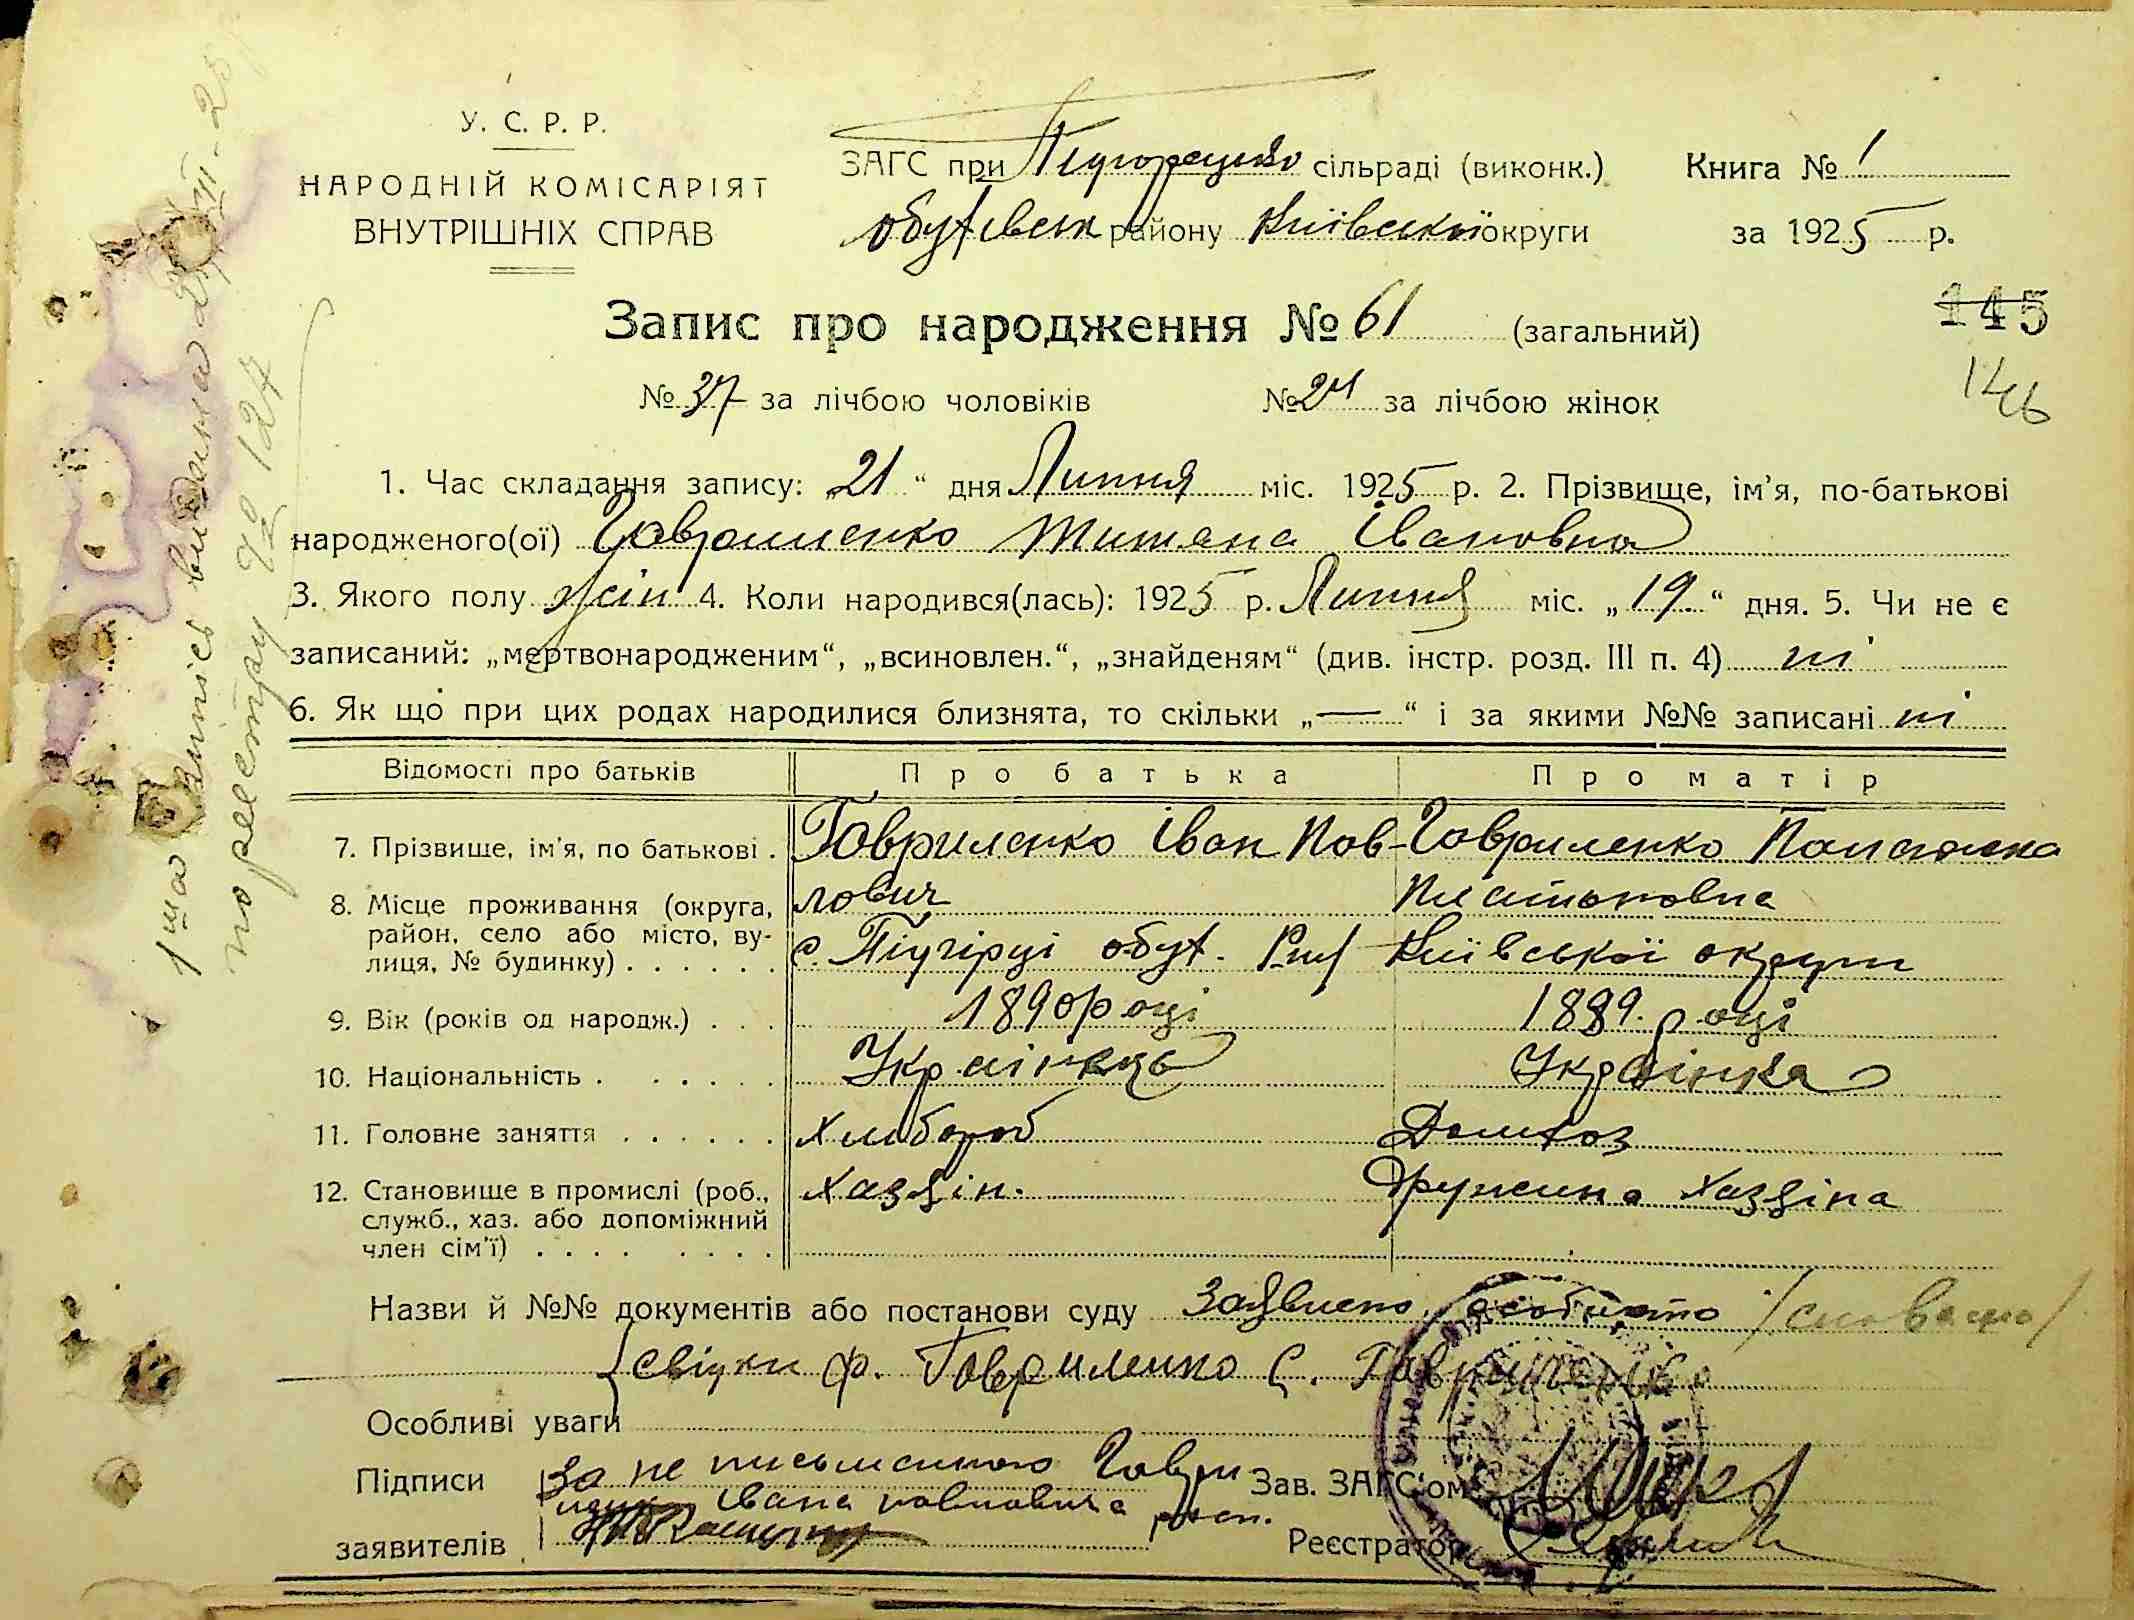 У. С. Р. Р.
НАРОДНІЙ КОМІСАРІЯТ
ВНУТРІШНІХ СПРАВ
ЗАГС при Підгорецько сільраді (виконк.)
Обухівськ району Київської округи
Книга № 1
за 1925 р.
Запис про народження № 61 (загальний)
145
146
№ 37 за лічбою чоловіків № 24 за лічбою жінок
1. Час складання запису: „21“ дня Липня міс. 1925 р. 2. Прізвище, ім'я, по-батькові
народженого(ої) Гавриленко Титяна Івановна
3. Якого полу жін 4. Коли народився(лась): 1925 р. Липня міс. „19“ дня. 5. Чи не є
записаний: „мертвонародженим“, „всиновлен.“, „знайденям“ (див. інстр. розд. III п. 4) ні
6. Як що при цих родах народилися близнята, то скільки „—“ і за якими №№ записані ні
Відомості про батьків Про батька Про матір
7. Прізвише, ім'я, по батькові . Гавриленко Іван Пав- Гавриленко
лович
8. Місце проживання (округа,
район, село або місто, ву-
лиця, № будинку) . . . . . . с. Підгірці обух. Рну Київської округи
9. Вік (років од народж.) . . . 1890 році 1889 році
10. Національність . . . . . . Українець Українка
11. Головне заняття . . . . . . Хлибороб Домхоз
12. Становище в промислі (роб.,
служб., хаз. або допоміжний
член сім'ї) . . . . . . . . Хазяін. Дружина Хазяіна
Назви й №№ документів або постанови суду Заявлено особисто /словесно/
Свідки Ф. Гавриленко С. Гавриленко
Особливі уваги
Підписи За не письменного Гаври-
Івана павловича розп.
заявителів
Зав. ЗАГС'ом
Реєстратор
1ша випись видана
по реєстру № 127